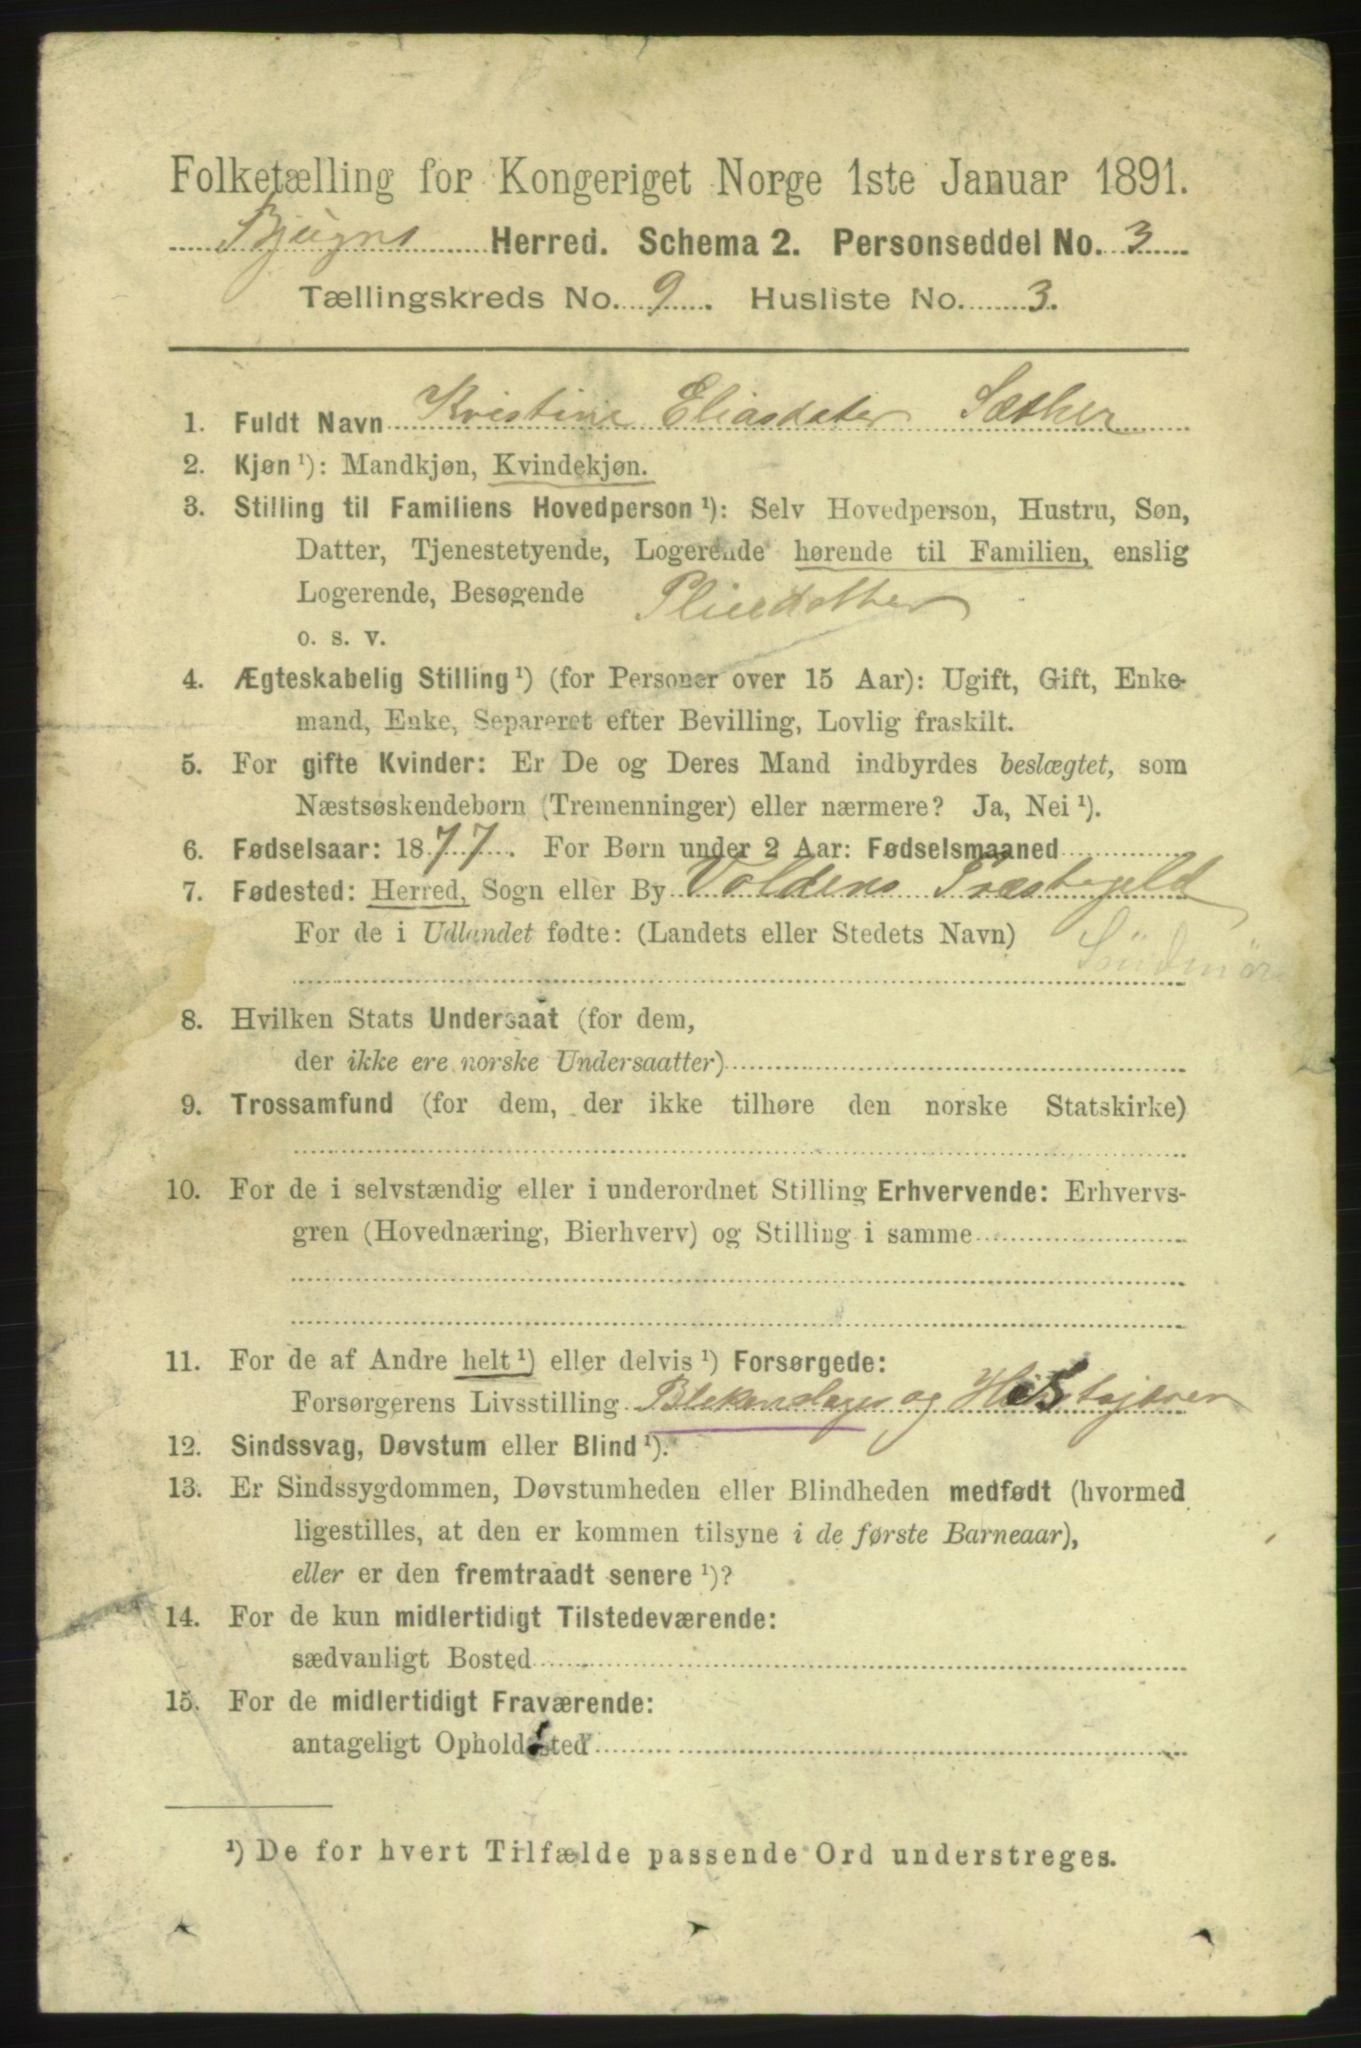 Folketælling for Kongeriget Norge 1ste Januar 1891.
Bjugns Herred. Schema 2. Personseddel No. 3
Tællingskreds No. 9. Husliste No. 3.
1. Fuldt Navn Kristine Eliasdater Sæther
2. Kjøn ¹): Mandkjøn, Kvindekjøn.
3. Stilling til Familiens Hovedperson ¹): Selv Hovedperson, Hustru, Søn,
Datter, Tjenestetyende, Logerende hørende til Familien, enslig
Logerende, Besøgende Pliedatther
o. s. v.
4. Ægteskabelig Stilling ¹) (for Personer over 15 Aar): Ugift, Gift, Enke-
mand, Enke, Separeret efter Bevilling, Lovlig fraskilt.
5. For gifte Kvinder: Er De og Deres Mand indbyrdes beslægtet, som
Næstsøskendebørn (Tremenninger) eller nærmere? Ja, Nei ¹).
6. Fødselsaar: 1877. For Børn under 2 Aar: Fødselsmaaned
7. Fødested: Herred, Sogn eller By Voldens Præstegjeld
For de i Udlandet fødte: (Landets eller Stedets Navn) Søndmør
8. Hvilken Stats Undersaat (for dem,
der ikke ere norske Undersaatter)
9. Trossamfund (for dem, der ikke tilhøre den norske Statskirke)
10. For de i selvstændig eller i underordnet Stilling Erhvervende: Erhvervs-
gren (Hovednæring, Bierhverv) og Stilling i samme
11. For de af Andre helt ¹) eller delvis ¹) Forsørgede:
Forsørgerens Livsstilling Blekenslager og
12. Sindssvag, Døvstum eller Blind ¹).
13. Er Sindssygdommen, Døvstumheden eller Blindheden medfødt (hvormed
ligestilles, at den er kommen tilsyne i de første Barneaar),
eller er den fremtraadt senere ¹)?
14. For de kun midlertidigt Tilstedeværende:
sædvanligt Bosted
15. For de midlertidigt Fraværende:
antageligt Opholdssted
¹) De for hvert Tilfælde passende Ord understreges.